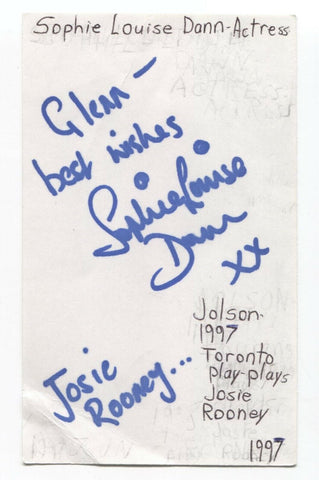 Sophie Louise Dann-Actress
Glenn-
best wishes
Sophie Louise
Dann
xx
Jolson-
1997
Toronto
play-plays
Josie
Rooney
Josie
Rooney...
1997